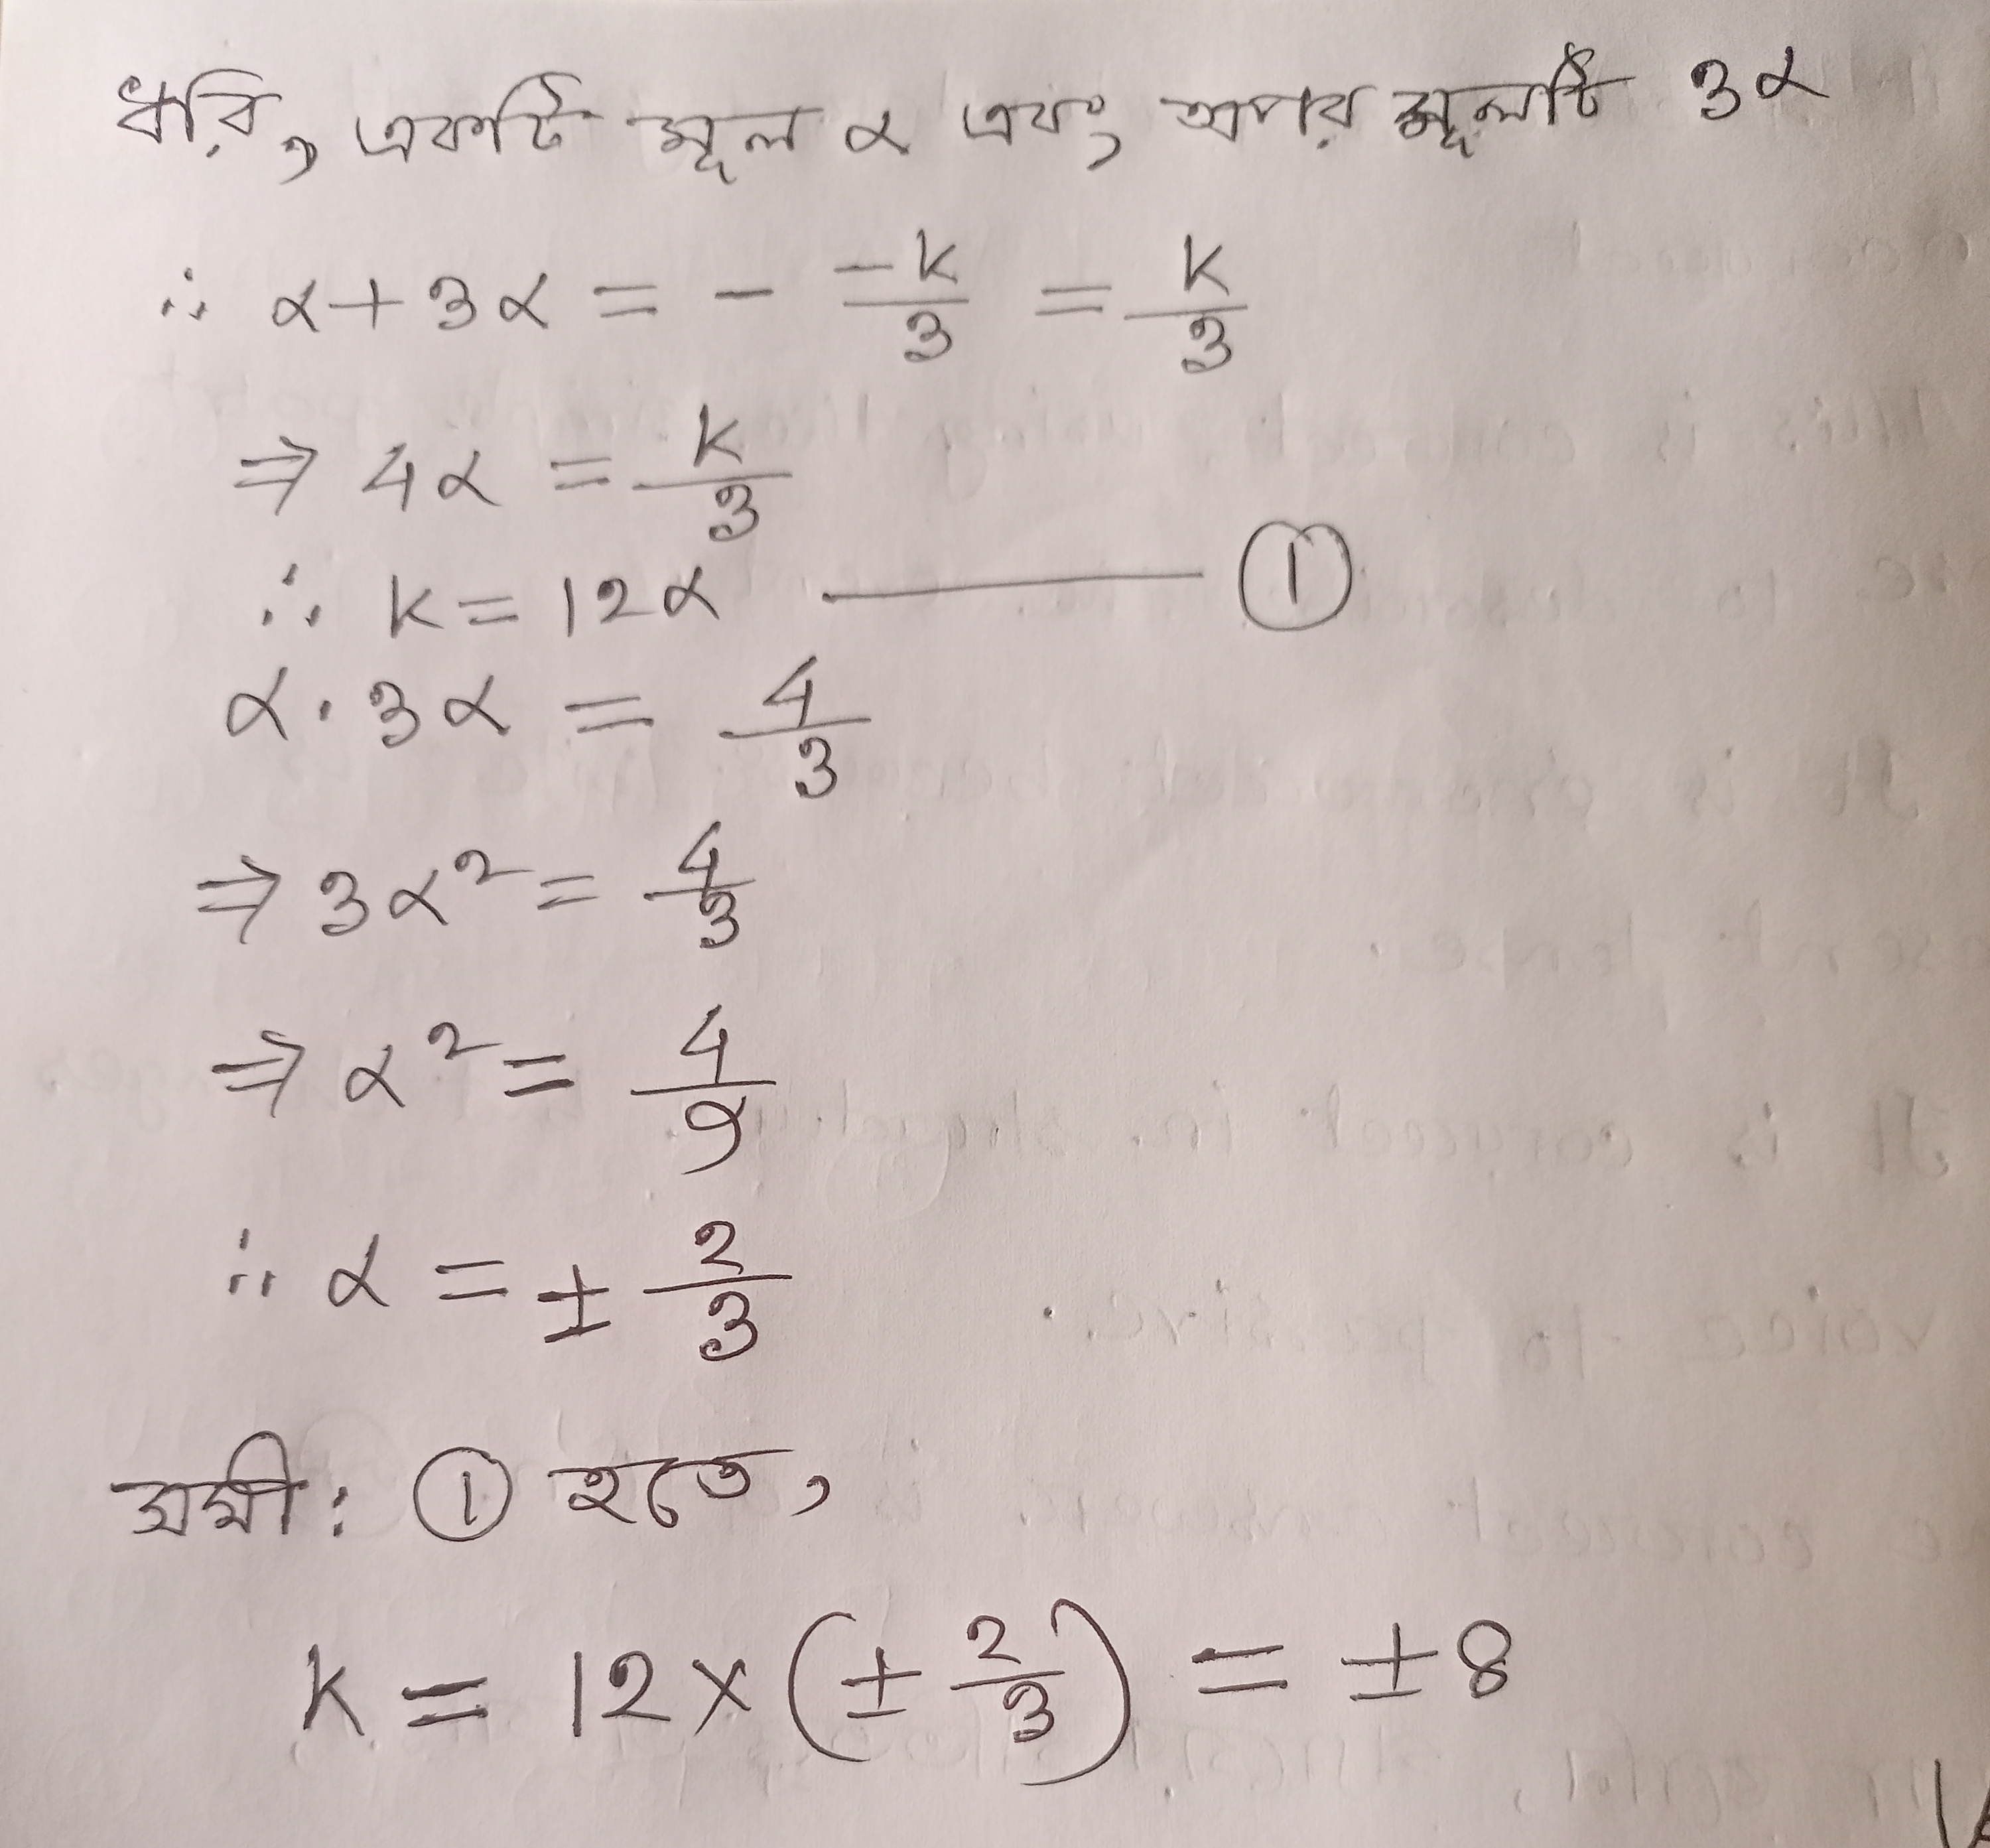 ধরি, একটি মূল α এবং অপর মূলটি 3α
∴ α + 3α = - -k/3 = k/3
⇒ 4α = k/3
∴ k = 12α ——— ①
α . 3α = 4/3
⇒ 3α² = 4/3
⇒ α² = 4/9
∴ α = ± 2/3
সমী: ① হতে,
k = 12 × (± 2/3) = ±8